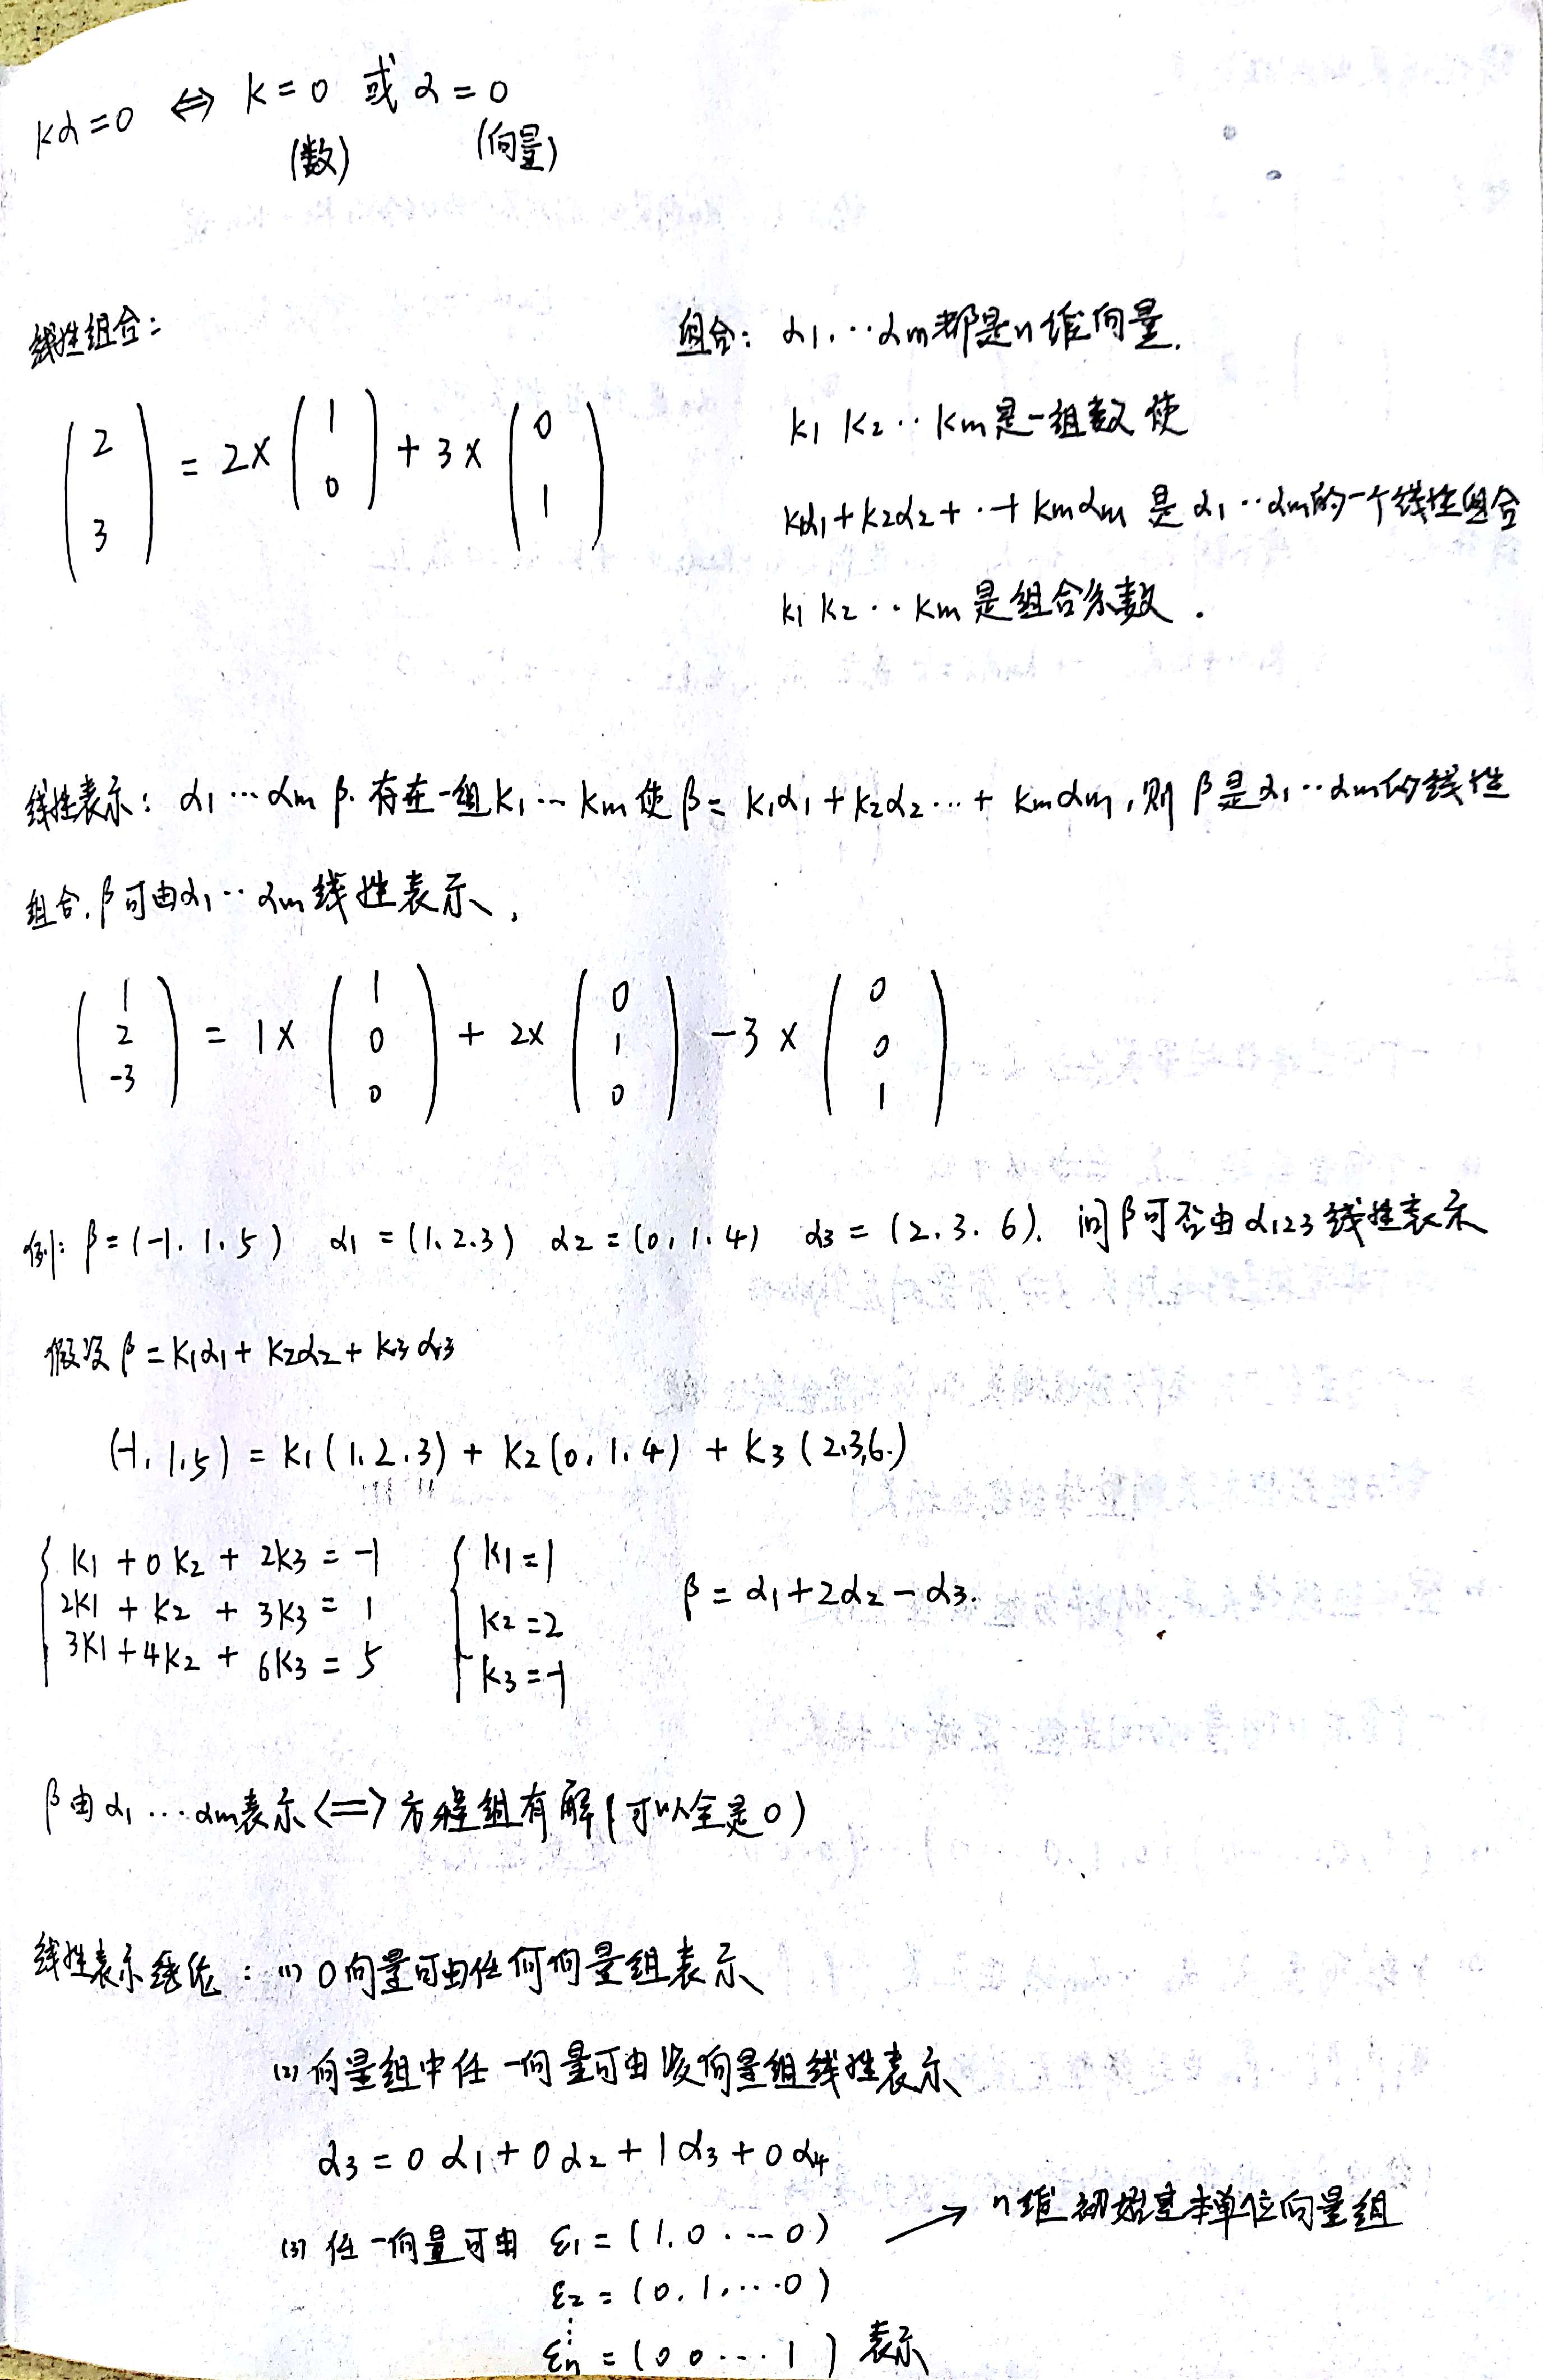 kα=0 ⇔ k=0 或 α=0
(数) (向量)
线性组合:
(2 3) = 2×(1 0) + 3×(0 1)
组合: α1,··αm都是n维向量.
k1 k2··km是一组数 使
k1α1+k2α2+··+kmαm 是 α1··αm的一个线性组合
k1 k2··km是组合系数.
线性表示: α1···αm β. 存在一组k1···km使β=k1α1+k2α2···+kmαm, 则β是α1··αm的线性
组合.β可由α1··αm线性表示,
(1 2 -3) = 1×(1 0 0) + 2×(0 1 0) -3×(0 0 1)
例: β=(-1.1.5) α1=(1.2.3) α2=(0.1.4) α3=(2.3.6). 问β可否由α123线性表示
假设β=k1α1+k2α2+k3α3
(-1.1.5)=k1(1.2.3)+k2(0.1.4)+k3(2.3.6.)
k1+0k2+2k3=-1
2k1+k2+3k3=1
3k1+4k2+6k3=5
k1=1
k2=2
k3=-1
β=α1+2α2-α3.
β由α1···αm表示<=>方程组有解(可以全是0)
线性表示结论: (1) 0向量可由任何向量组表示
(2) 向量组中任一向量可由该向量组线性表示
α3=0α1+0α2+1α3+0α4
(3) 任一向量可由 ε1=(1.0···0) → n维初始基本单位向量组
ε2=(0.1,···0)
⋮
εn=(0 0···1) 表示